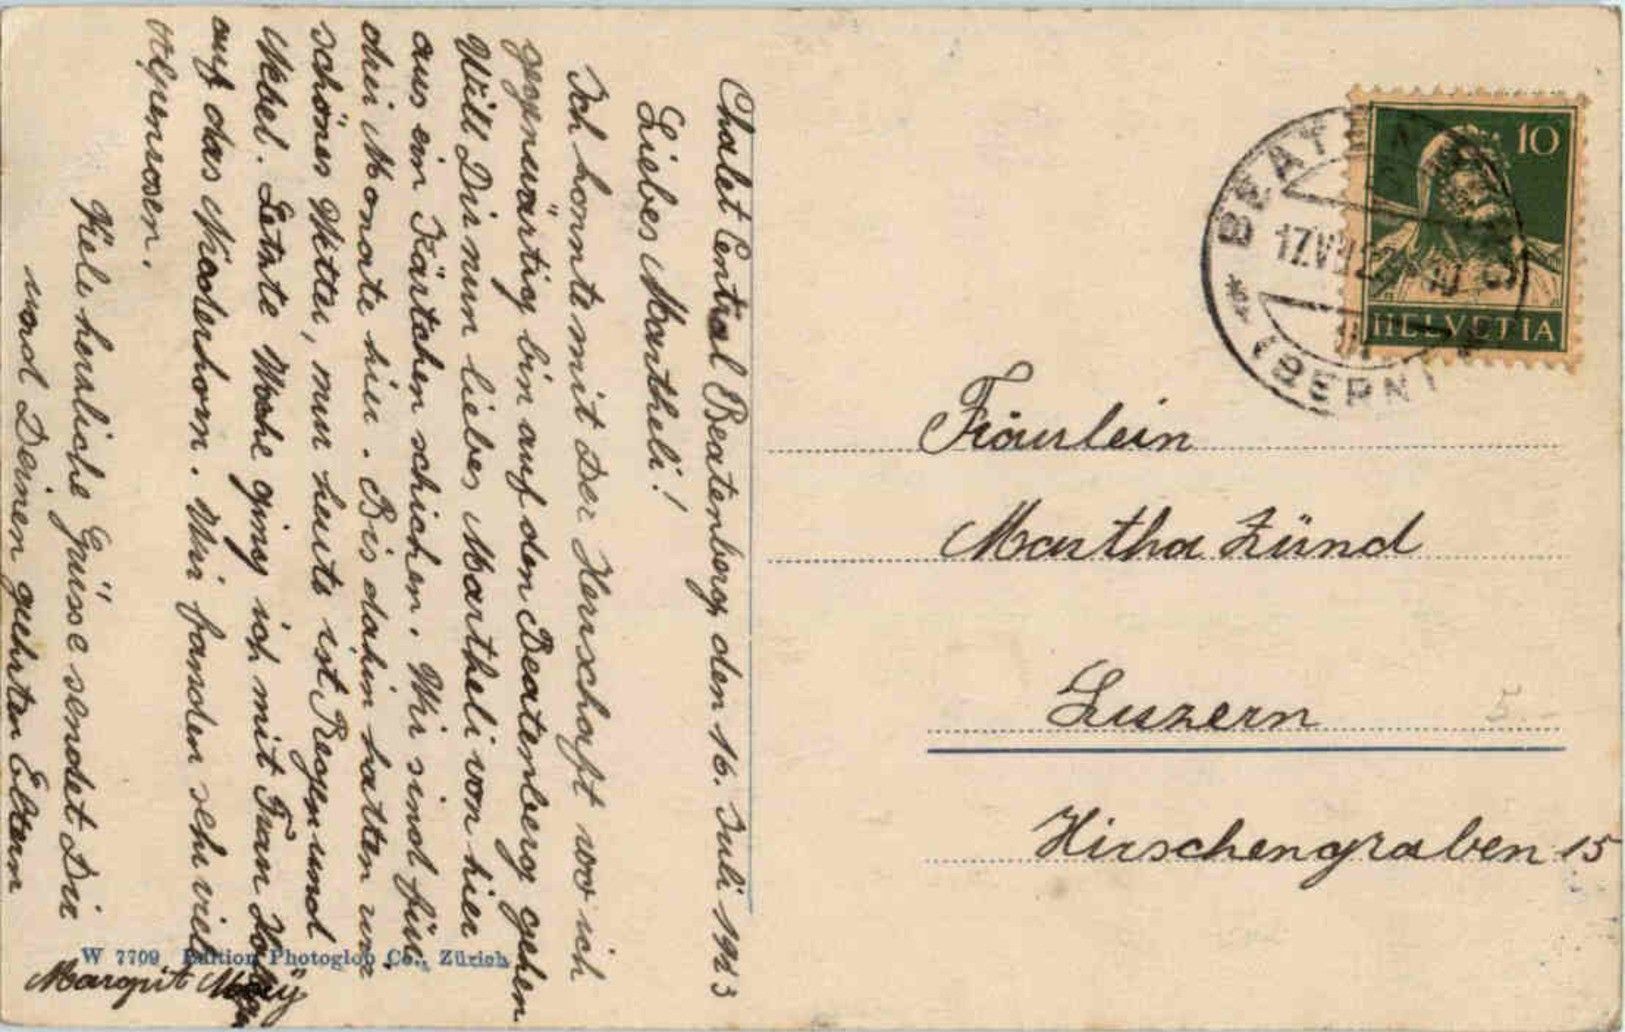 Chalet Central Beatenberg, den 16. Juli 1923
Liebes Martheli!
Ich konnte mit Der Herrschaft wo ich
gegenwärtig bin auf den Beatenberg gehen
Will Dir nun liebes Martheli von hier
aus ein Kärtchen schicken. Wir sind für
drei Monate hier. Bis dahin hatten wir
schönes Wetter, nur heute ist Regen und
Nebel. Letzte Woche ging ich mit Frau
auf das Niederhorn. Wir fanden sehr viel
Alpenrosen.
Viele herzliche Grüsse sendet Dir
und Deinen geehrten Eltern
Margrit
W 7709 Edition Photoglob Co., Zürich
10
HELVETIA
BEATENBERG
17.VII.23
(BERN)
Fräulein
Martha Zünd
Luzern
Hirschengraben 15
5.-